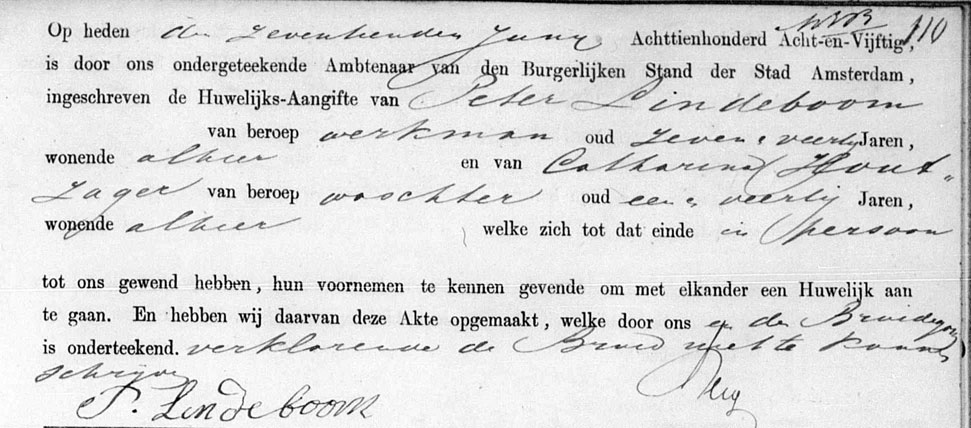 110
Op heden den Zeventienden Juny Achttienhonderd Acht-en-Vijftig,
is door ons ondergeteekende Ambtenaar van den Burgerlijken Stand der Stad Amsterdam,
ingeschreven de Huwelijks-Aangifte van Peter Lindeboom
van beroep werkman oud zeven & veertig Jaren,
wonende alhier en van Catharina Hout-
zager van beroep waschter oud een & veertig Jaren,
wonende alhier welke zich tot dat einde in persoon
tot ons gewend hebben, hun voornemen te kennen gevende om met elkander een Huwelijk aan
te gaan. En hebben wij daarvan deze Akte opgemaakt, welke door ons en den Bruidegom
is onderteekend. verklarende de Bruid niet te kunnen
schrijven
P. Lindeboom